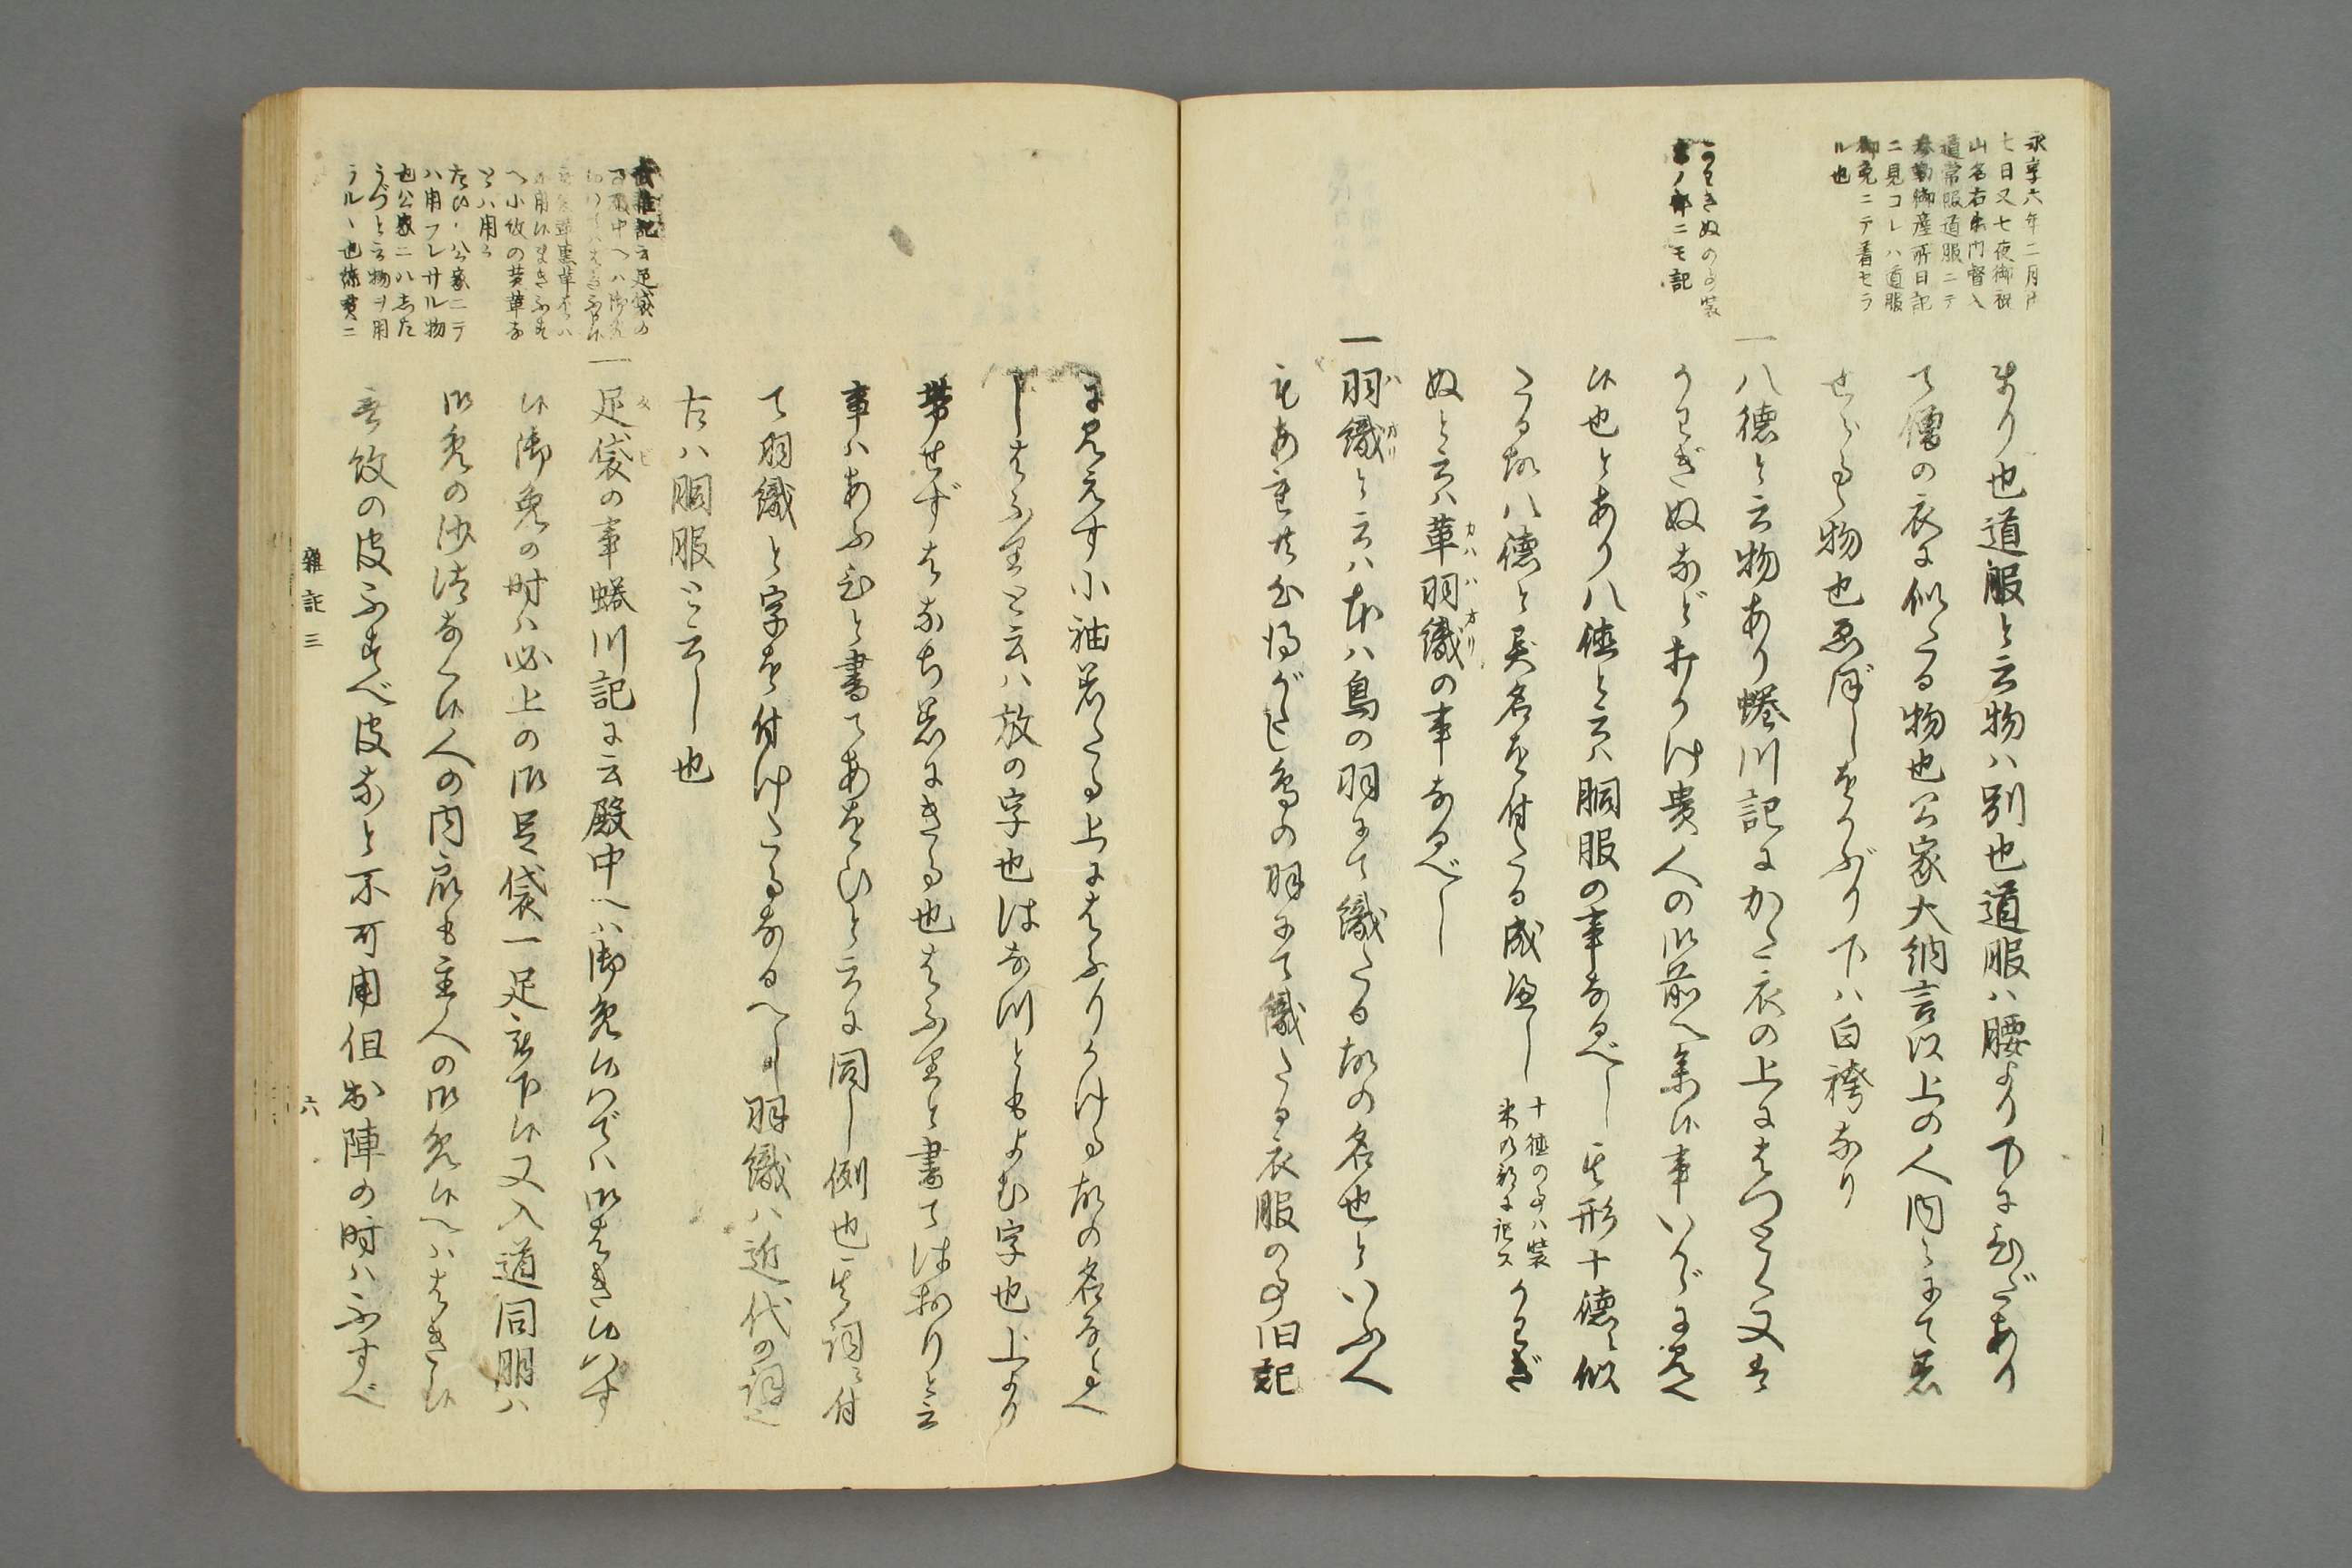 永享六年二月十
七日又七夜御祝
山名右衛門督入
道常熙道服ニテ
参勤御産所日記
ニ見コレハ道服
御免ニテ着セラ
ル也
まり也道服と云物ハ別也道服ハ腰より下にひだあり
て僧の衣に似たる物也公家大納言以上の人内々にて着
せらるゝ物也ゑぼしをかぶり下ハ白袴なり
一八徳と云物あり蜷川記にかた衣の上にはつとく又は
かはぎぬなど打かけ貴人の御前へ参候事いかゞに見へ
候也とあり八徳と云ハ胴服の事なるべし其形十徳に似
たる故八徳と異名を付たる成べし
十徳の事ハ装
束の部に記ス
かはぎ
ぬと云ハ革羽織の事なるべし
カハハオリ
かはきぬの事装
束ノ部ニモ記
一羽織と云ハ本ハ鳥の羽にて織たる故の名也といふ人
ハオリ
もあれ共心得がたし鳥の羽にて織たる衣服の事旧記
に見えす小袖着たる上にはふりかける故の名なるべ
しはふると云ハ放の字也はなつともよむ字也上より
帯せずはなち着にきる也はふると書てはおりと云
事ハあふひと書てあをひと云に同し例也其詞に付
て羽織と字を付けたるなるへし羽織ハ近代の詞也
古ハ胴服と云し也
一足袋の事蜷川記に云殿中へハ御免候ハてハ御はき候ハす
タビ
候御免の時ハ必上の御足袋一足被下候又入道同朋ハ
御免の沙汰なく候人の内衆も主人の御免候へハはき候
無紋の皮ふすべ皮なと不可用但出陣の時ハふすべ
武雑記云足袋の
事殿中へハ御免
候ハてハはき不申候
へ小紋の黄革な
とハ用る
たひハ公家ニテ
ハ用フレサル物
也公家ニハした
うづと云物ヲ用
ラルヽ也
雑記三
六